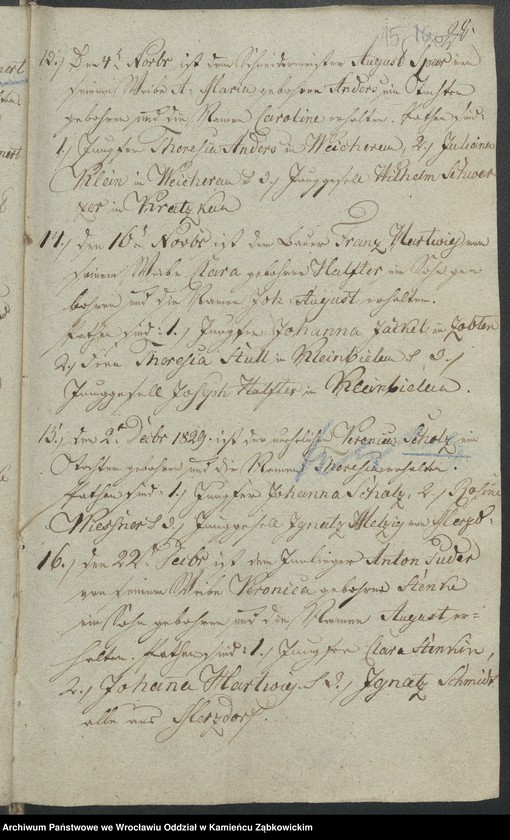 15. 16.
13.) Den 4t Novbr ist dem Schneidermeister August Spar von
seinem Weibe A: Maria gebohrne Anders ein Tochter
gebohren und die Namen Caroline erhalten. Pathen sind:
1.) Jungfer Theresia Anders in Weicherau, 2.) Juliana
Klein in Weicherau u 3.) Junggesell Wilhelm Schwar
zer in Kratzkau
14.) den 16t Novbr ist dem Bauer Franz Hartwig von
seinem Weibe Clara gebohrne Halfter ein Sohn ge-
bohren und die Namen Joh: August erhalten.
Pathen sind: 1.) Jungfer Johanna Jäckel in Zobten
2.) Frau Theresia Stull in Kleinbielau u. 3.)
Junggesell Joseph Halfter in Kleinbielau.
15.) den 2t Decbr 1829 ist der Scholz ein
Tochter gebohren und die Namen Theresia erhalten.
Pathen sind: 1.) Jungfer Johanna Schatz, 2.) Rosine
Wiessner u 3.) Junggesell Ignatz Metzig von Merzd:
16.) den 22t Decbr ist dem Innlieger Anton Puder
von seinem Weibe Veronica gebohrne Stenke
ein Sohn gebohren und die Namen August er-
halten. Pathen sind: 1.) Jungfer Clara Stenkin,
2.) Johana Hartwig u 3.) Ignatz Schmidt
alle aus Merzdorf.
Archiwum Państwowe we Wrocławiu Oddział w Kamieńcu Ząbkowickim